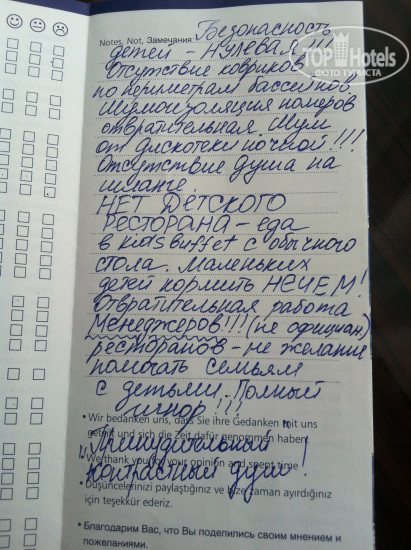 Notes, Not, Замечания: Безопасность
детей - НУЛЕВАЯ!!!
TOP Hotels
ФОТО ТУРИСТА
Отсутствие ковриков
по периметрам бассейнов.
Шумоизоляция номеров
отвратительная. Шум
от дискотеки ночной!!!
Отсутствие душа на
шланге.
НЕТ ДЕТСКОГО
РЕСТОРАНА - еда
в kids buffet с обычного
стола. Маленьких
детей кормить НЕЧЕМ!
Отвратительная работа
Менеджеров!!! (не официан.)
ресторанов - не желание
помогать семьям
с детьми. Полный
игнор!!!
• Wir bedanken uns, dass Sie ihre Gedanken mit uns
geteilt und sich die Zeit dafür genommen haben.
"Принудительный
• We thank you for your opinion and spent time
контрастный душ"!
• Düşüncelerinizi paylaştığınız ve bize zaman ayırdığınız
için teşekkür ederiz.
• Благодарим Вас, что Вы поделились своим мнением и
пожеланиями.